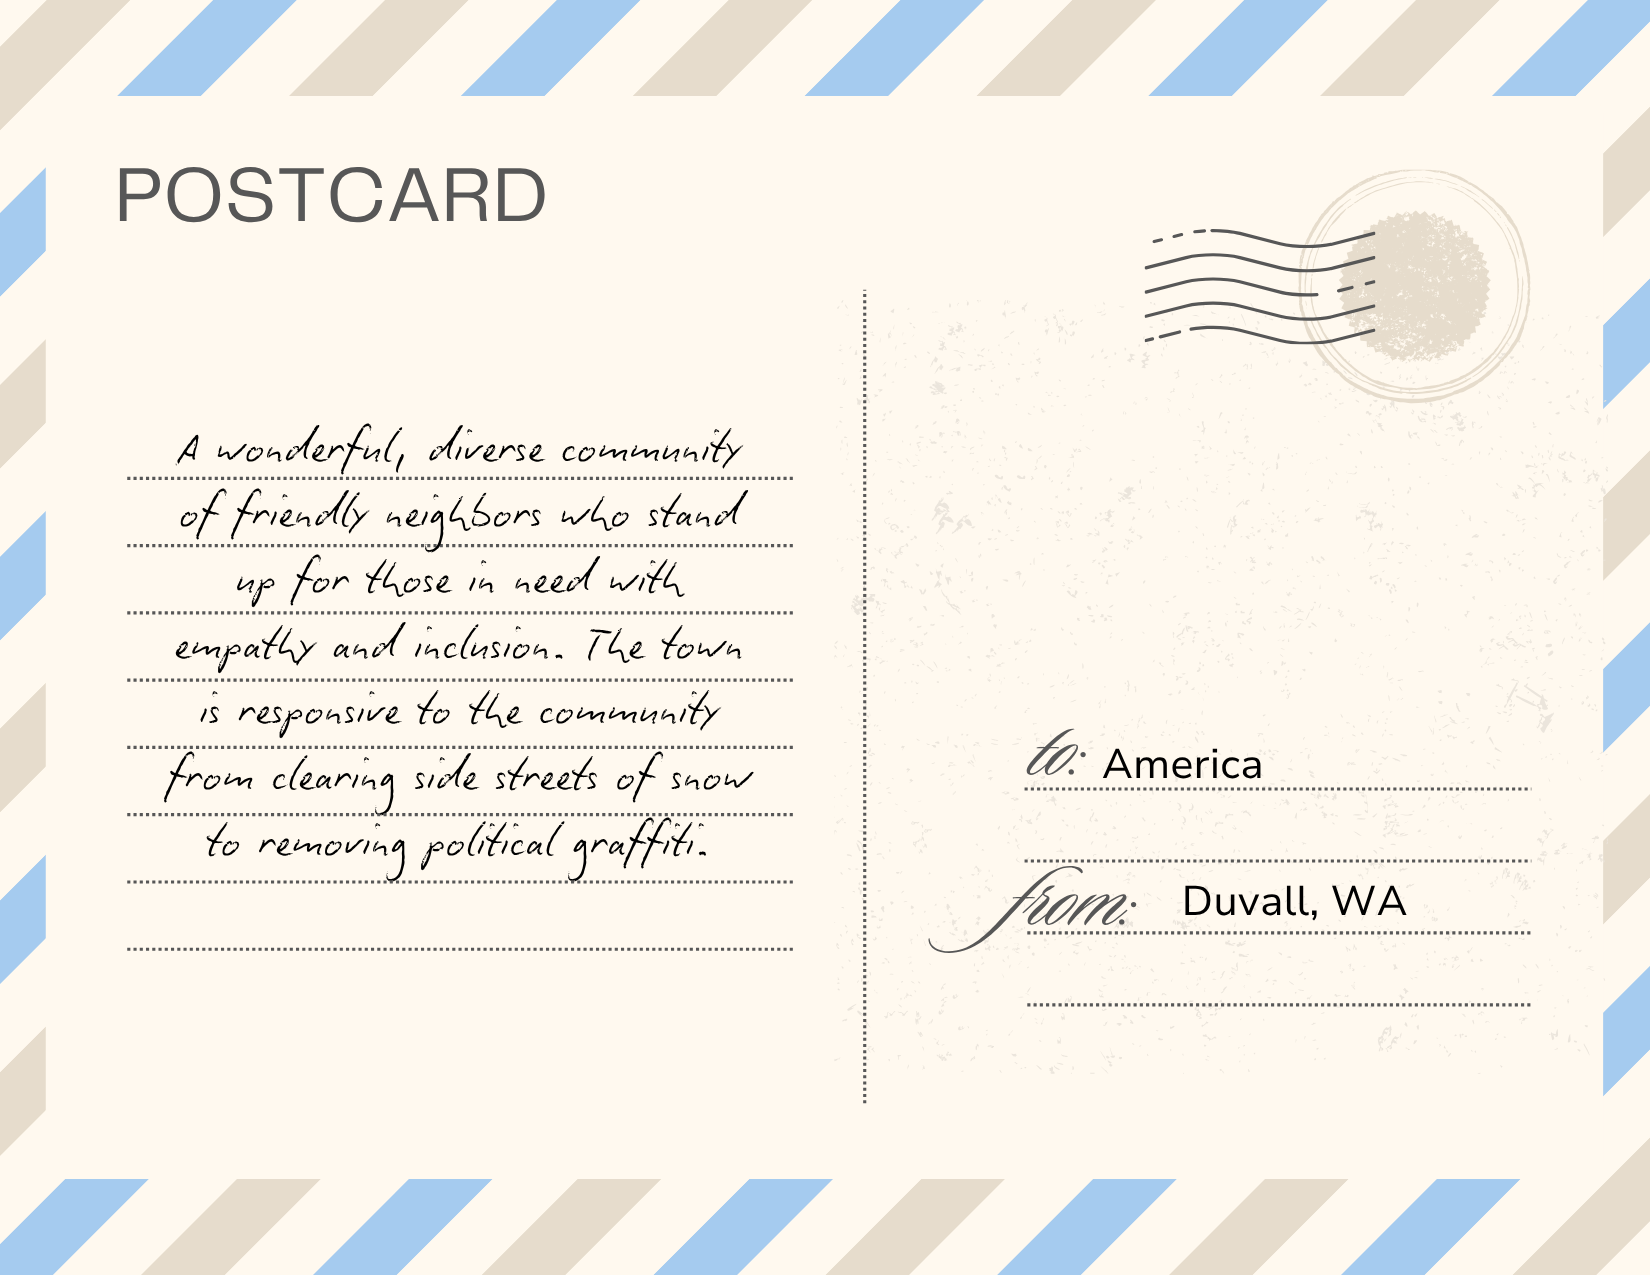 POSTCARD
A wonderful, diverse community
of friendly neighbors who stand
up for those in need with
empathy and inclusion. The town
is responsive to the community
from clearing side streets of snow
to removing political graffiti.
to: America
from: Duvall, WA